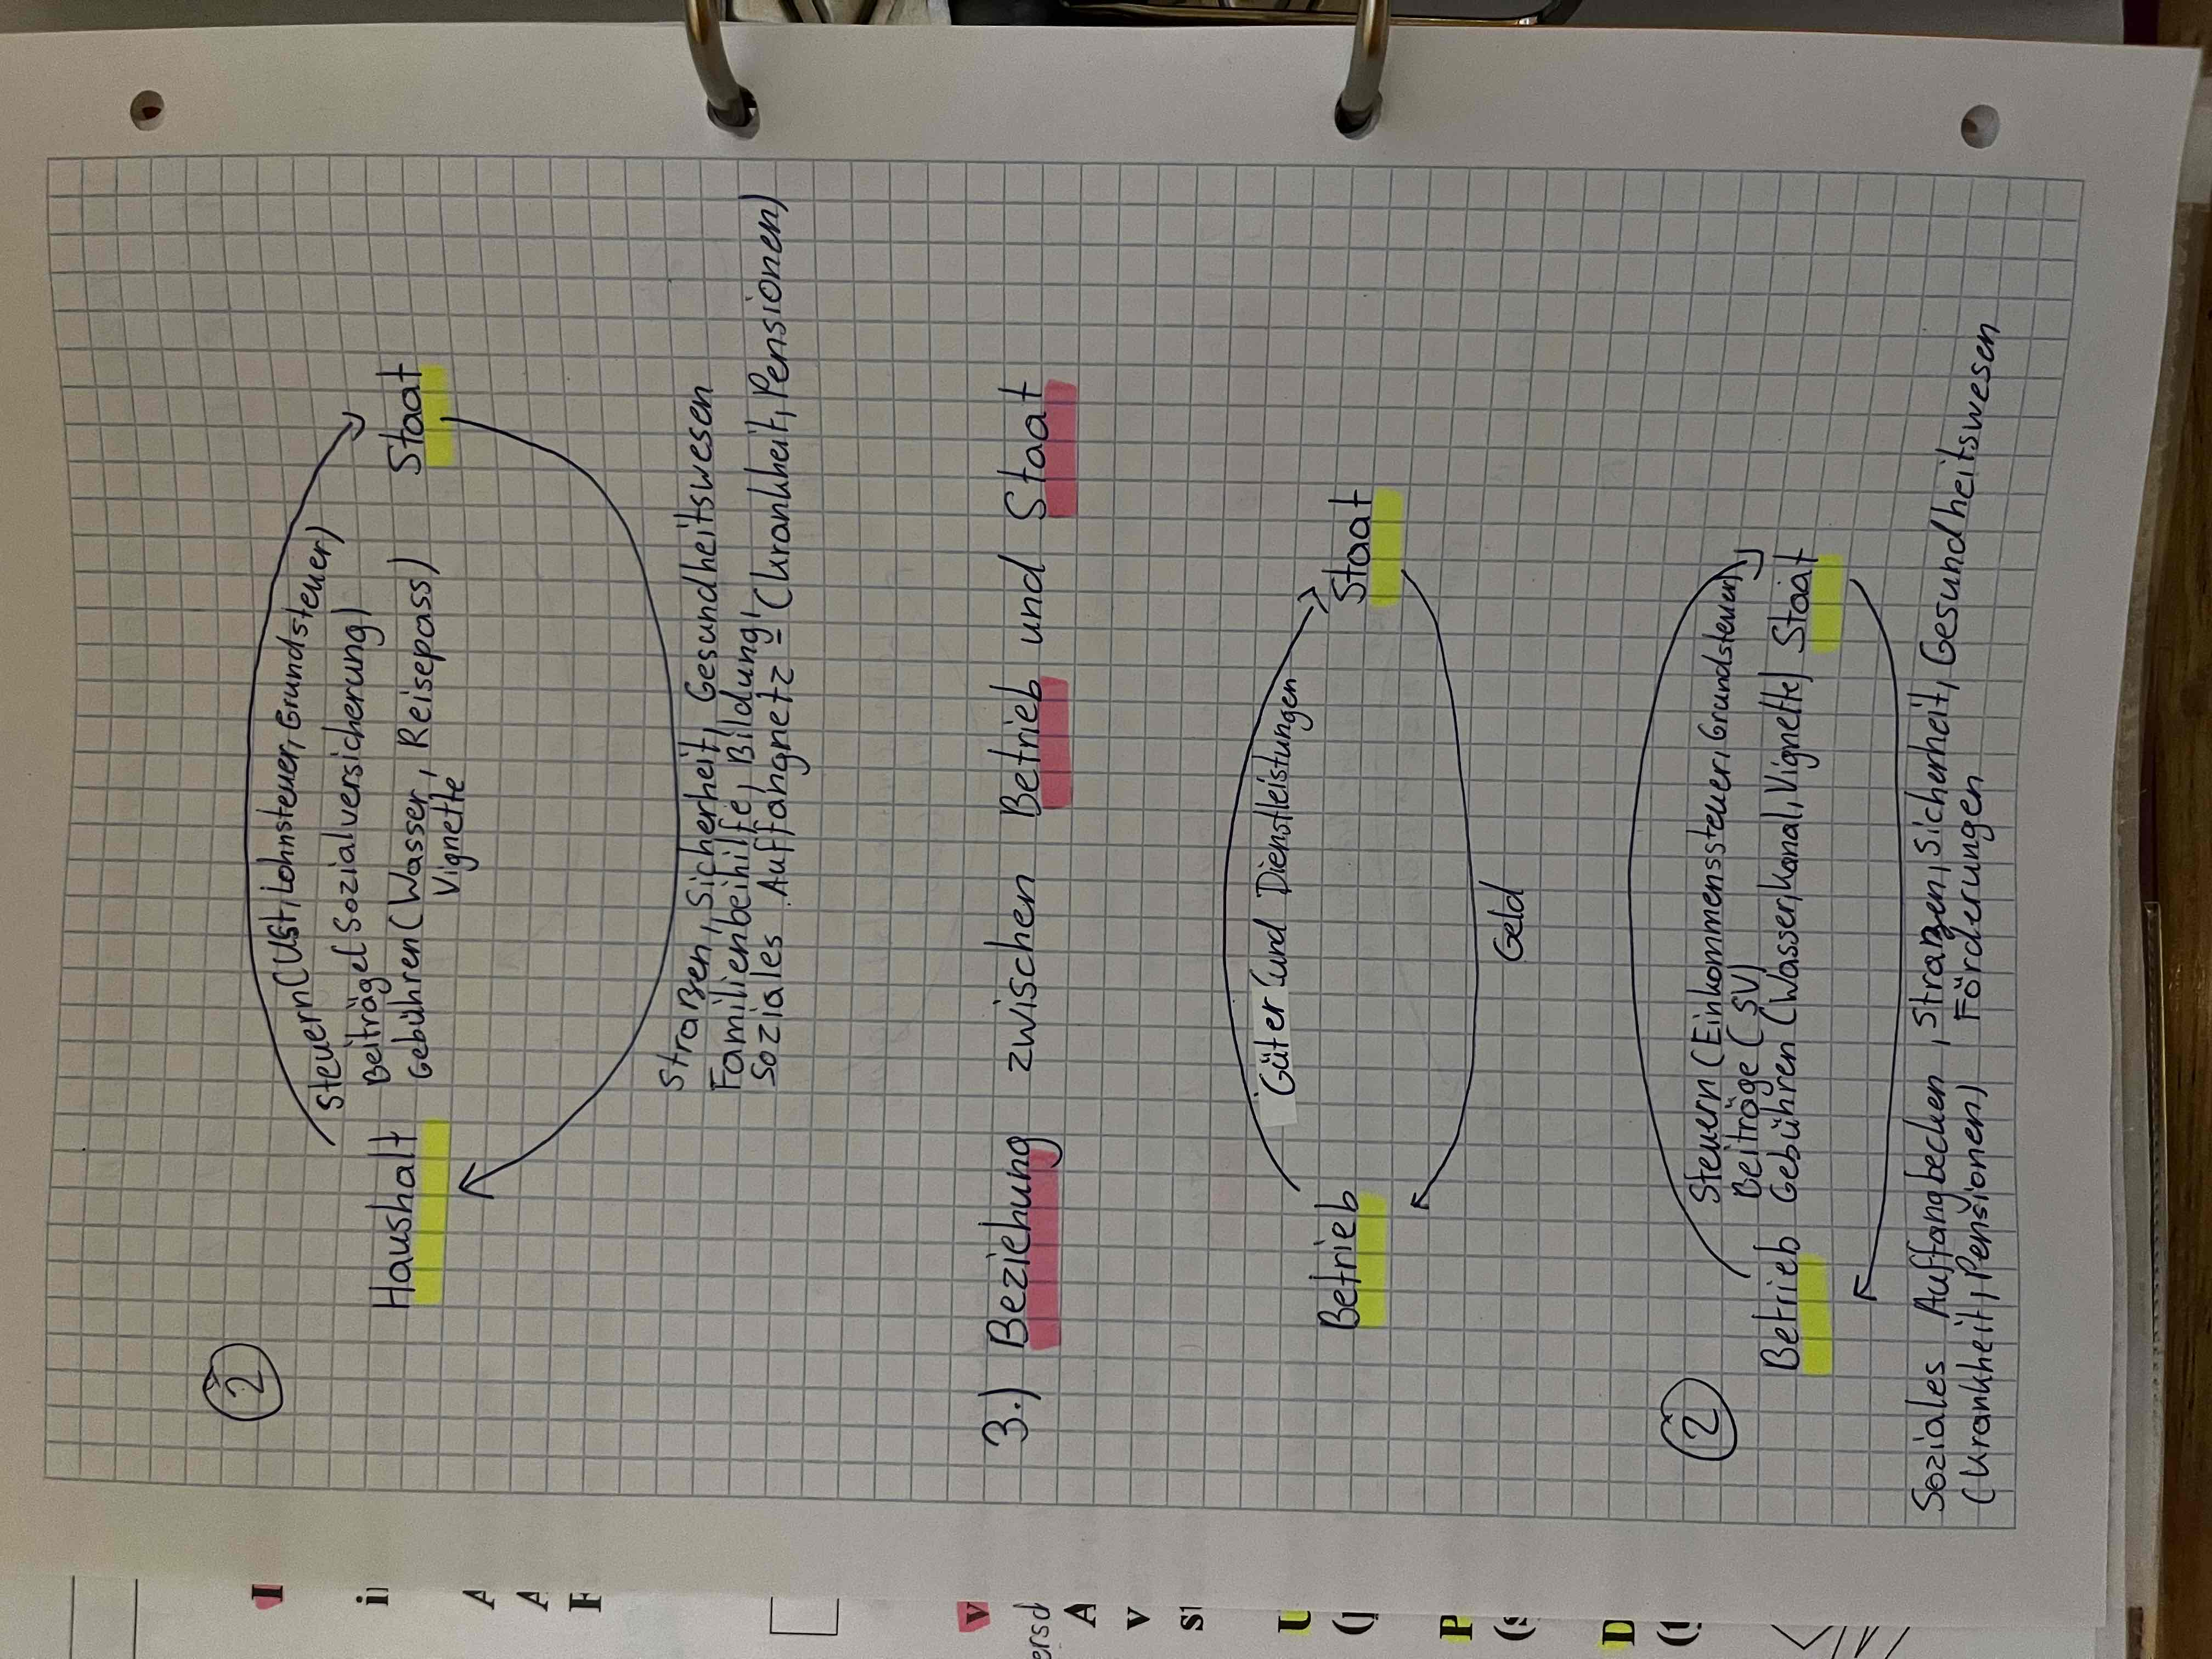 2
Steuern (USt, Lohnsteuer, Grundsteuer)
Beiträge (Sozialversicherung)
Haushalt Gebühren (Wasser, Reisepass) Staat
Vignette
Straßen, Sicherheit, Gesundheitswesen
Familienbeihilfe, Bildung,
Soziales Auffangnetz - (Krankheit, Pensionen)
3.) Beziehung zwischen Betrieb und Staat
Güter und Dienstleistungen
Betrieb Staat
Geld
2
Steuern (Einkommenssteuer, Grundsteuer)
Beiträge (SV)
Betrieb Gebühren (Wasser, Kanal, Vignette) Staat
Soziales Auffangbecken, Straßen, Sicherheit, Gesundheitswesen
(Krankheit, Pensionen) Förderungen